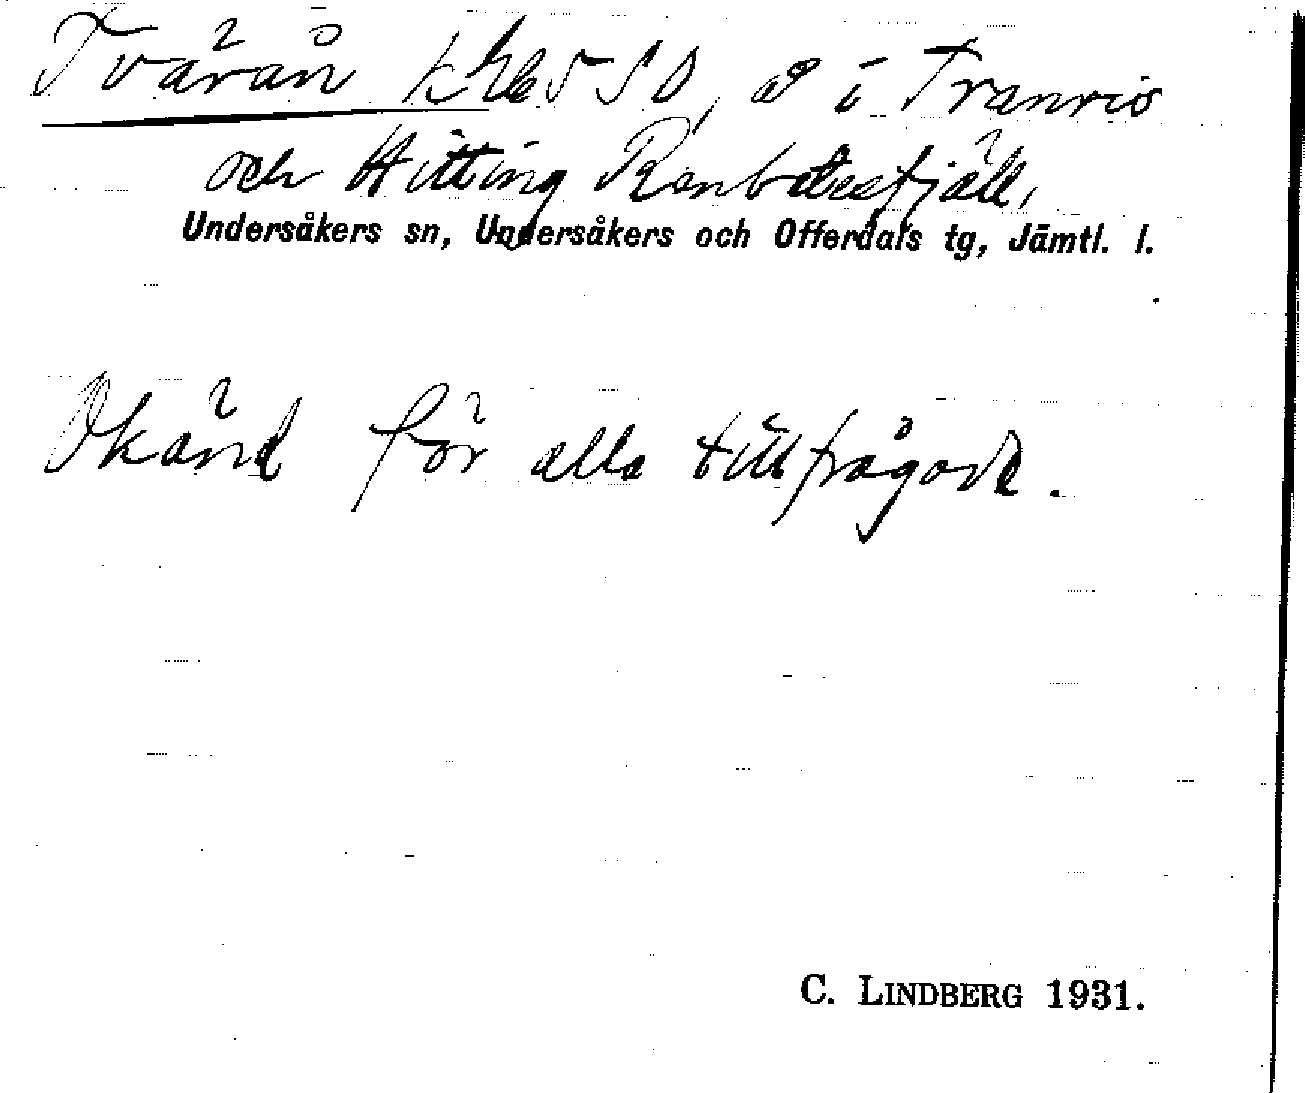 Tvärån k 265 SO, å i Tranris
och Hitting Renbetesfjäll,
Undersåkers sn, Undersåkers och Offerdals tg, Jämtl. l.
Okänd för alla tillfrågade.
C. LINDBERG 1931.